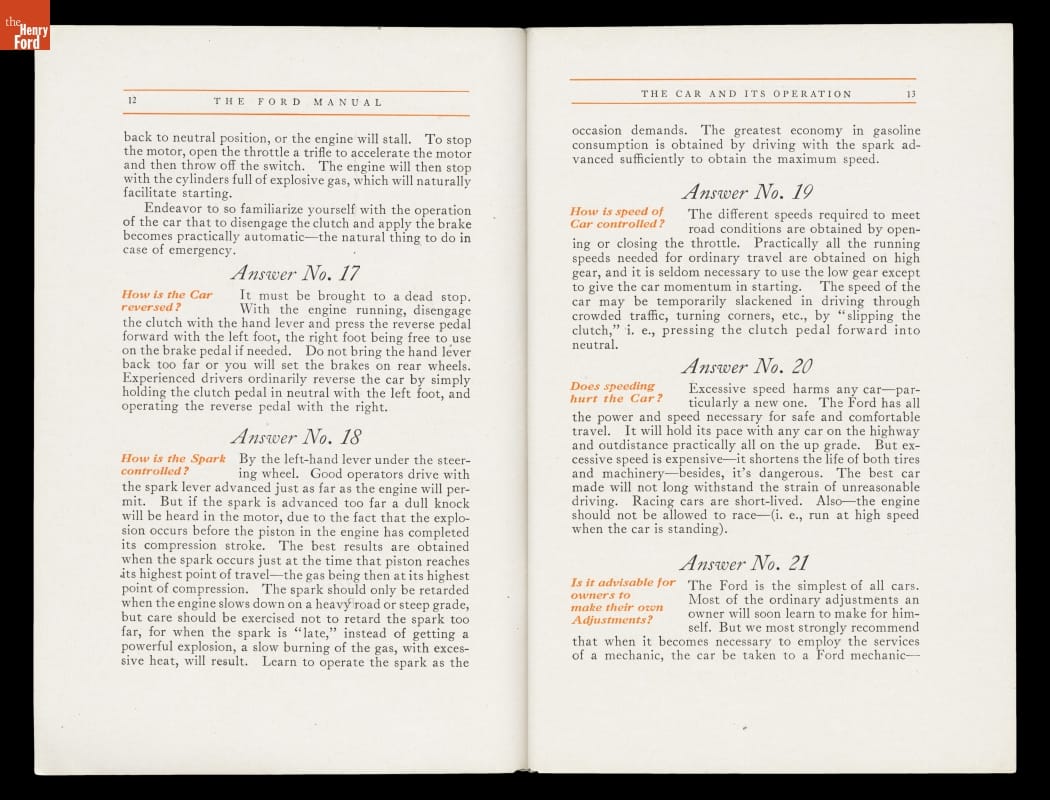 the
Henry
Ford
12 THE FORD MANUAL
back to neutral position, or the engine will stall. To stop
the motor, open the throttle a trifle to accelerate the motor
and then throw off the switch. The engine will then stop
with the cylinders full of explosive gas, which will naturally
facilitate starting.
Endeavor to so familiarize yourself with the operation
of the car that to disengage the clutch and apply the brake
becomes practically automatic—the natural thing to do in
case of emergency.
Answer No. 17
How is the Car
reversed?
It must be brought to a dead stop.
With the engine running, disengage
the clutch with the hand lever and press the reverse pedal
forward with the left foot, the right foot being free to use
on the brake pedal if needed. Do not bring the hand lever
back too far or you will set the brakes on rear wheels.
Experienced drivers ordinarily reverse the car by simply
holding the clutch pedal in neutral with the left foot, and
operating the reverse pedal with the right.
Answer No. 18
How is the Spark
controlled?
By the left-hand lever under the steer-
ing wheel. Good operators drive with
the spark lever advanced just as far as the engine will per-
mit. But if the spark is advanced too far a dull knock
will be heard in the motor, due to the fact that the explo-
sion occurs before the piston in the engine has completed
its compression stroke. The best results are obtained
when the spark occurs just at the time that piston reaches
its highest point of travel—the gas being then at its highest
point of compression. The spark should only be retarded
when the engine slows down on a heavy road or steep grade,
but care should be exercised not to retard the spark too
far, for when the spark is “late,” instead of getting a
powerful explosion, a slow burning of the gas, with exces-
sive heat, will result. Learn to operate the spark as the
THE CAR AND ITS OPERATION 13
occasion demands. The greatest economy in gasoline
consumption is obtained by driving with the spark ad-
vanced sufficiently to obtain the maximum speed.
Answer No. 19
How is speed of
Car controlled?
The different speeds required to meet
road conditions are obtained by open-
ing or closing the throttle. Practically all the running
speeds needed for ordinary travel are obtained on high
gear, and it is seldom necessary to use the low gear except
to give the car momentum in starting. The speed of the
car may be temporarily slackened in driving through
crowded traffic, turning corners, etc., by “slipping the
clutch,” i. e., pressing the clutch pedal forward into
neutral.
Answer No. 20
Does speeding
hurt the Car?
Excessive speed harms any car—par-
ticularly a new one. The Ford has all
the power and speed necessary for safe and comfortable
travel. It will hold its pace with any car on the highway
and outdistance practically all on the up grade. But ex-
cessive speed is expensive—it shortens the life of both tires
and machinery—besides, it's dangerous. The best car
made will not long withstand the strain of unreasonable
driving. Racing cars are short-lived. Also—the engine
should not be allowed to race—(i. e., run at high speed
when the car is standing).
Answer No. 21
Is it advisable for
owners to
make their own
Adjustments?
The Ford is the simplest of all cars.
Most of the ordinary adjustments an
owner will soon learn to make for him-
self. But we most strongly recommend
that when it becomes necessary to employ the services
of a mechanic, the car be taken to a Ford mechanic—